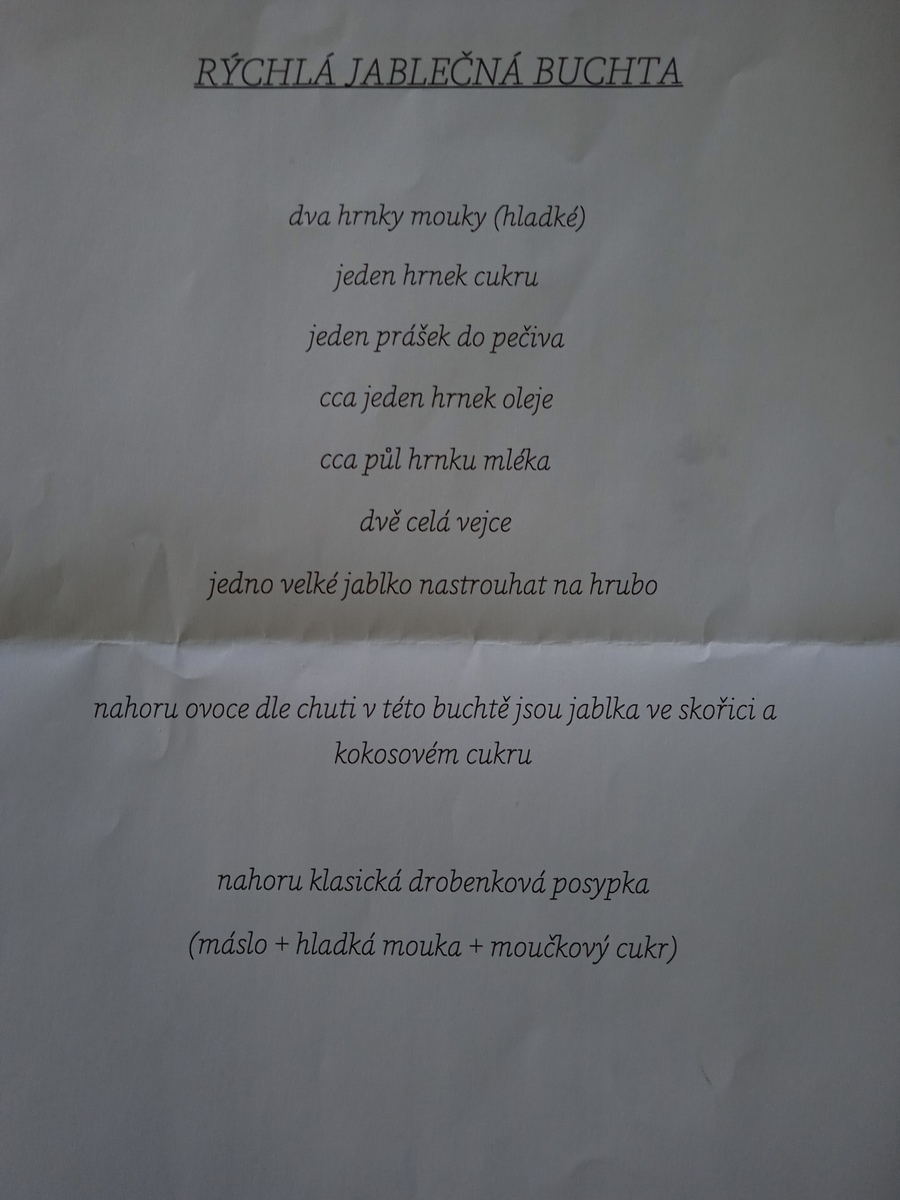 RÝCHLÁ JABLEČNÁ BUCHTA
dva hrnky mouky (hladké)
jeden hrnek cukru
jeden prášek do pečiva
cca jeden hrnek oleje
cca půl hrnku mléka
dvě celá vejce
jedno velké jablko nastrouhat na hrubo
nahoru ovoce dle chuti v této buchtě jsou jablka ve skořici a
kokosovém cukru
nahoru klasická drobenková posypka
(máslo + hladká mouka + moučkový cukr)